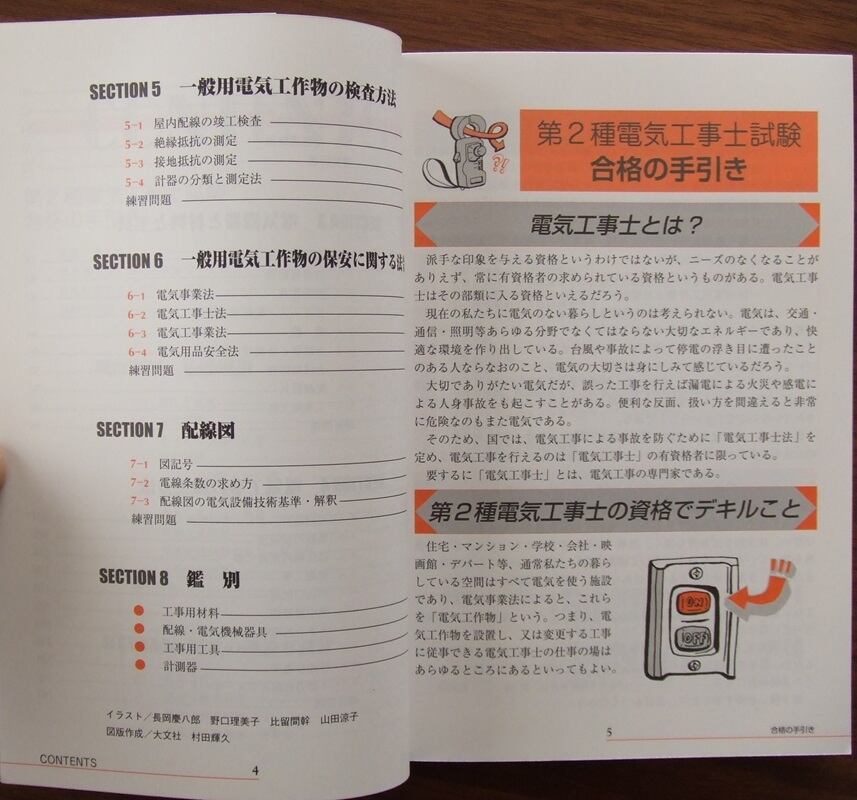 SECTION 5 一般用電気工作物の検査方法
5-1 屋内配線の竣工検査
5-2 絶縁抵抗の測定
5-3 接地抵抗の測定
5-4 計器の分類と測定法
練習問題
SECTION 6 一般用電気工作物の保安に関する法
6-1 電気事業法
6-2 電気工事士法
6-3 電気工事業法
6-4 電気用品安全法
練習問題
SECTION 7 配線図
7-1 図記号
7-2 電線条数の求め方
7-3 配線図の電気設備技術基準・解釈
練習問題
SECTION 8 鑑 別
● 工事用材料
● 配線・電気機械器具
● 工事用工具
● 計測器
イラスト/長岡慶八郎 野口理美子 比留間幹 山田涼子
図版作成/大文社 村田輝久
CONTENTS
4
第2種電気工事士試験
合格の手引き
電気工事士とは?
派手な印象を与える資格というわけではないが、ニーズのなくなることが
ありえず、常に有資格者の求められている資格というものがある。電気工事
士はその部類に入る資格といえるだろう。
現在の私たちに電気のない暮らしというのは考えられない。電気は、交通・
通信・照明等あらゆる分野でなくてはならない大切なエネルギーであり、快
適な環境を作り出している。台風や事故によって停電の浮き目に遭ったこと
のある人ならなおのこと、電気の大切さは身にしみて感じているだろう。
大切でありがたい電気だが、誤った工事を行えば漏電による火災や感電に
よる人身事故をも起こすことがある。便利な反面、扱い方を間違えると非常
に危険なのもまた電気である。
そのため、国では、電気工事による事故を防ぐために「電気工事士法」を
定め、電気工事を行えるのは「電気工事士」の有資格者に限っている。
要するに「電気工事士」とは、電気工事の専門家である。
第2種電気工事士の資格でデキルこと
住宅・マンション・学校・会社・映
画館・デパート等、通常私たちの暮ら
している空間はすべて電気を使う施設
であり、電気事業法によると、これら
を「電気工作物」という。つまり、電
気工作物を設置し、又は変更する工事
に従事できる電気工事士の仕事の場は
あらゆるところにあるといってもよい。
ON
OFF
5
合格の手引き